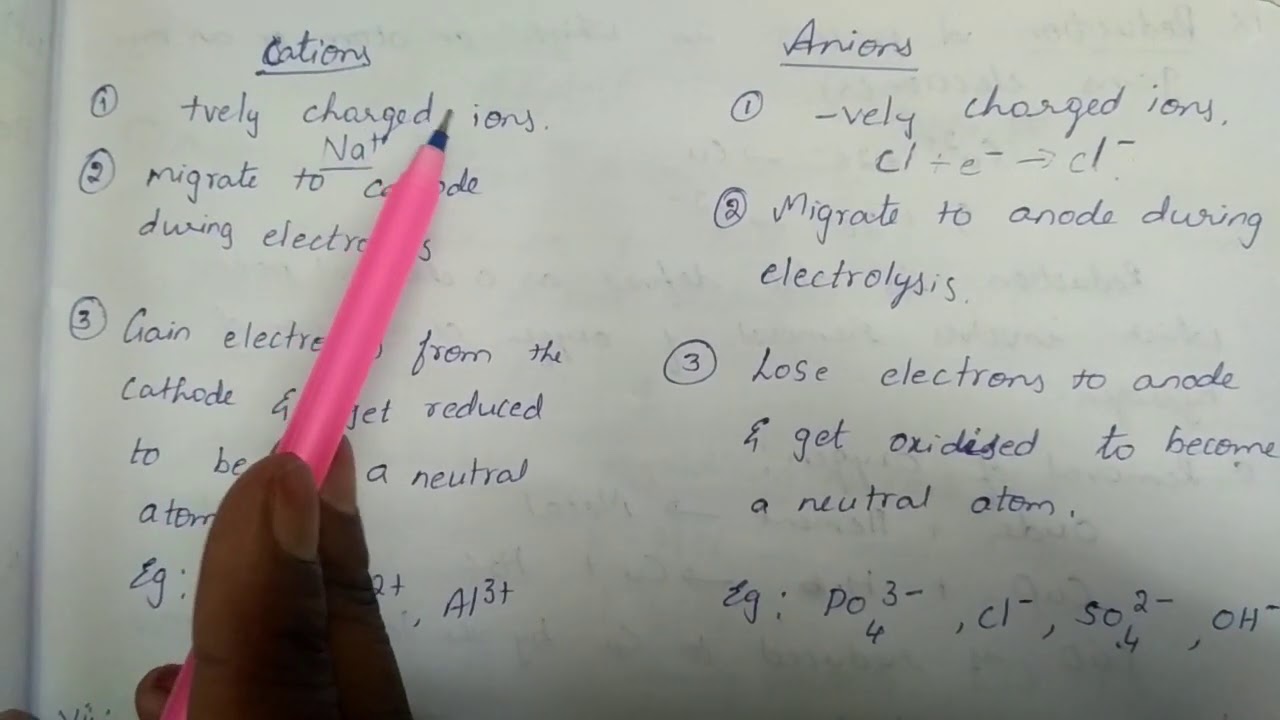 Cations
① +vely charged ions.
Na⁺
② migrate to
during
③ Gain from the
cathode & get reduced
to a neutral
Eg: 2+, Al³⁺
Anions
① -vely charged ions.
Cl + e⁻ → cl⁻
② Migrate to anode during
electrolysis.
③ Lose electrons to anode
& get oxidised to become
a neutral atom.
Eg: PO₄³⁻, Cl⁻, SO₄²⁻, OH⁻